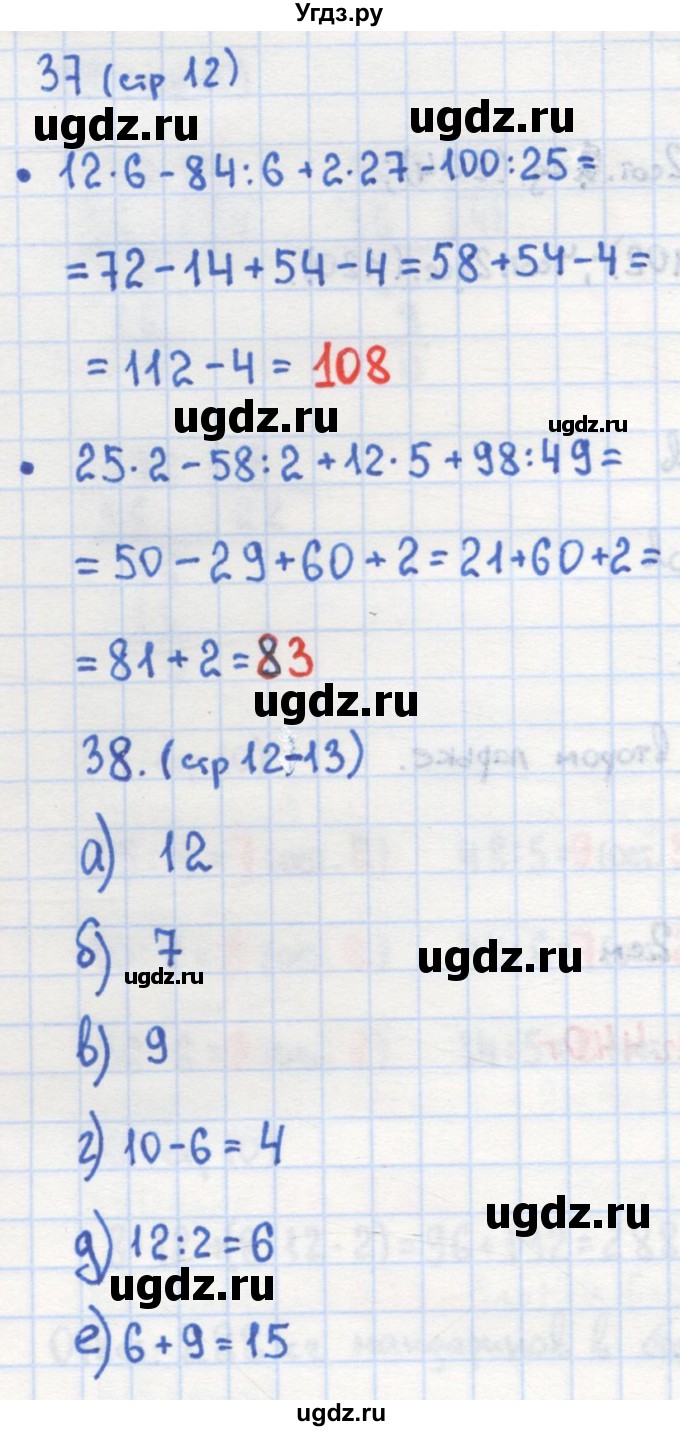 Угдз.ру
37 (стр 12)
ugdz.ru
ugdz.ru
• 12·6-84:6+2·27-100:25=
=72-14+54-4=58+54-4=
=112-4=108
ugdz.ru
ugdz.ru
• 25·2-58:2+12·5+98:49=
=50-29+60+2=21+60+2=
=81+2=83
ugdz.ru
38. (стр 12-13)
а) 12
б) 7
ugdz.ru
ugdz.ru
в) 9
г) 10-6=4
ugdz.ru
д) 12:2=6
ugdz.ru
е) 6+9=15
ugdz.ru